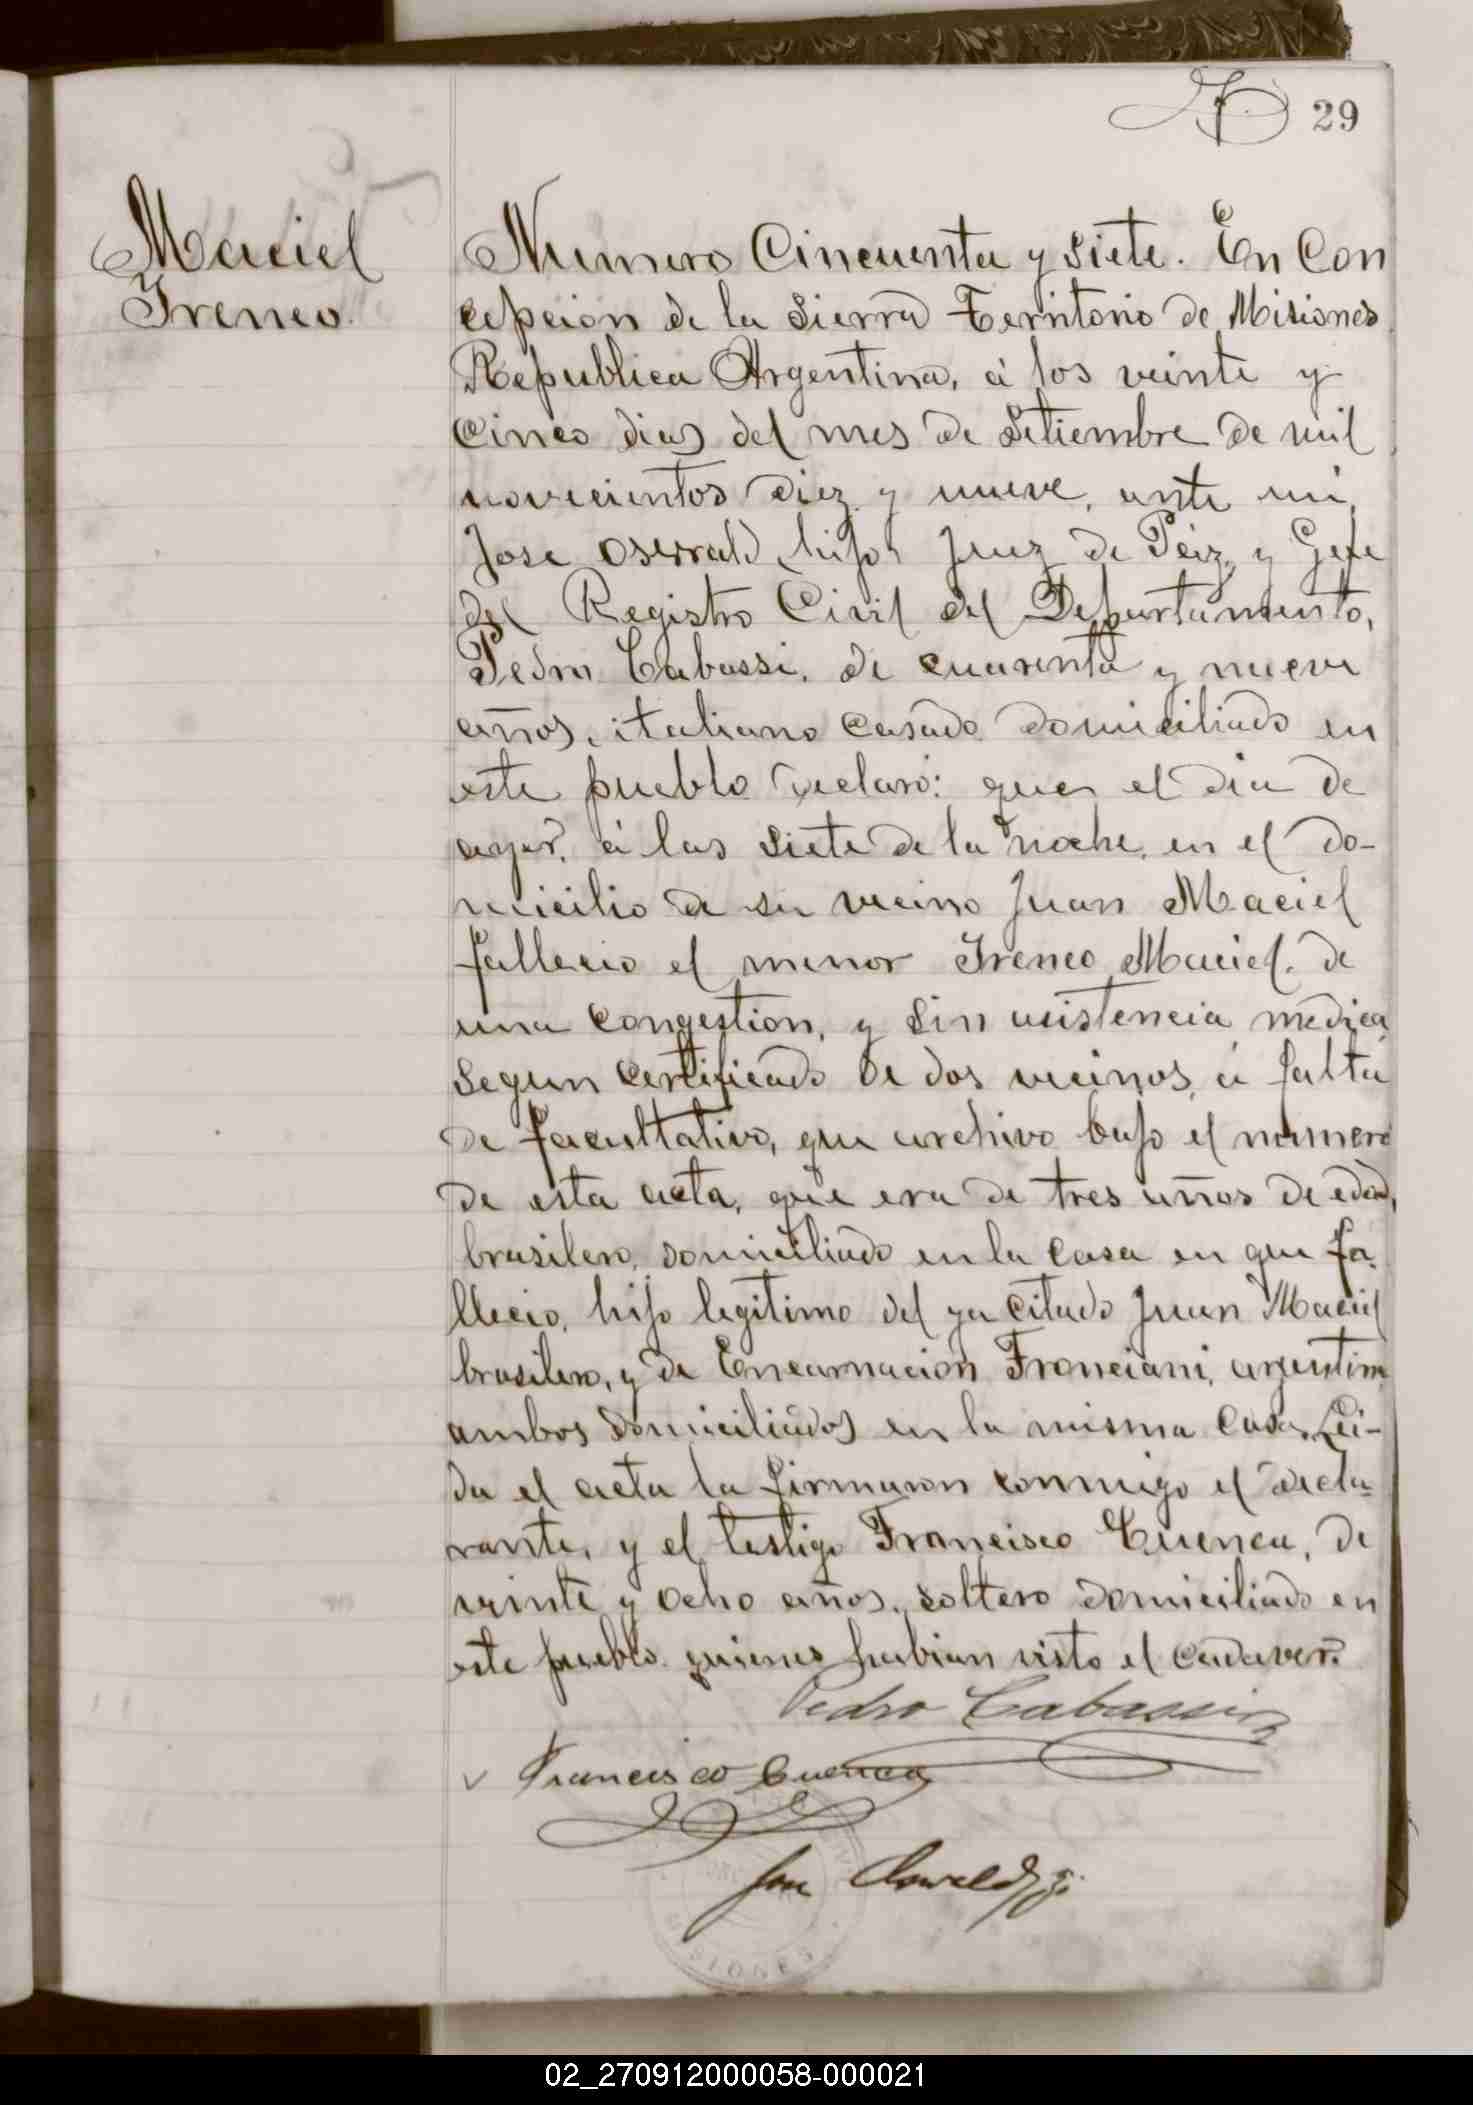 29
Maciel
Ireneo.
Numero Cincuenta y siete. En Con
cepcion de la Sierra Territorio de Misiones
Republica Argentina, á los veinte y
cinco dias del mes de Setiembre de mil
novecientos diez y nueve, ante mi,
Jose Oswald, hijo, Juez de Paz, y Gefe
del Registro Civil del Departamento,
Pedro Cabassi, de cuarenta y nueve
años, italiano casado domiciliado en
este pueblo declaró: que, el dia de
ayer, á las siete de la noche, en el do-
micilio de su vecino Juan Maciel
fallecio el menor Ireneo Maciel, de
una congestion, y sin asistencia medica
segun certificado de dos vecinos, á falta
de facultativo, que archivo bajo el numero
de esta acta, que era de tres años de edad,
brasilero, domiciliado en la casa en que fa-
llecio, hijo legitimo del ya citado Juan Maciel
brasilero, y de Encarnacion Franciani, argentina
ambos domiciliados en la misma casa. Lei-
da el acta la firmaron conmigo el decla-
rante, y el testigo Francisco Cuenca, de
veinte y ocho años, soltero domiciliado en
este pueblo quienes habian visto el cadaver.
Pedro Cabassi
Francisco Cuenca
Jose Oswald h.
SIONES
02_270912000058-000021